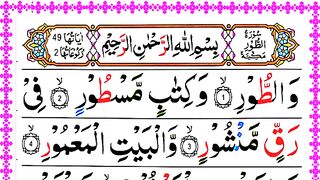 سُوْرَةُ الطُّوْرِ مَكِّيَّةٌ
بِسْمِ اللّٰهِ الرَّحْمٰنِ الرَّحِيْمِ
اٰيَاتُهَا 49
رُكُوْعَاتُهَا 2
وَالطُّوْرِ ۙ ۝1 وَكِتٰبٍ مَّسْطُوْرٍ ۙ ۝2 فِيْ
رَقٍّ مَّنْشُوْرٍ ۙ ۝3 وَّالْبَيْتِ الْمَعْمُوْرِ ۙ ۝4